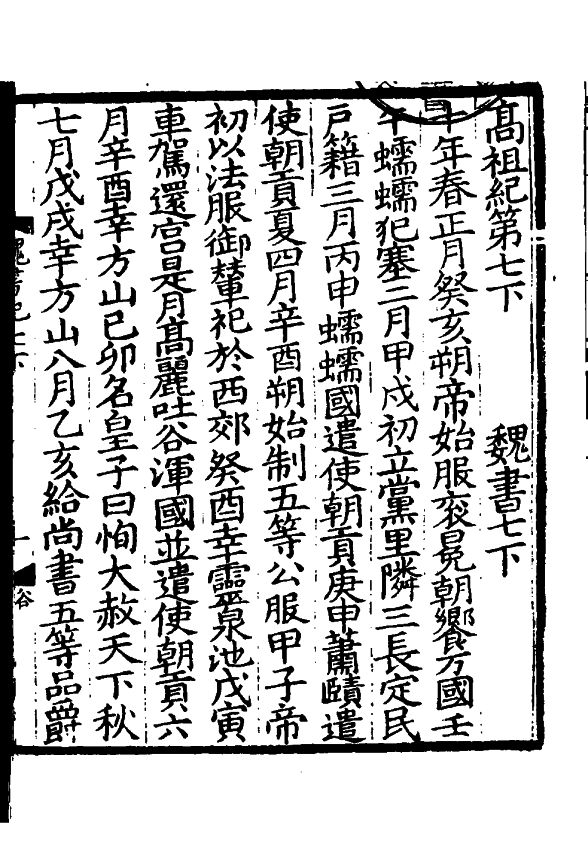 高祖紀第七下　魏書七下
十年春正月癸亥朔帝始服衮冕朝饗万國壬
午蠕蠕犯塞二月甲戌初立黨里隣三長定民
戸籍三月丙申蠕蠕國遣使朝貢庚申蕭賾遣
使朝貢夏四月辛酉朔始制五等公服甲子帝
初以法服御輦祀於西郊癸酉幸靈泉池戊寅
車駕還宮是月髙麗吐谷渾國並遣使朝貢六
月辛酉幸方山己卯名皇子曰恂大赦天下秋
七月戊戌幸方山八月乙亥給尚書五等品爵
魏書紀七下
一
谷